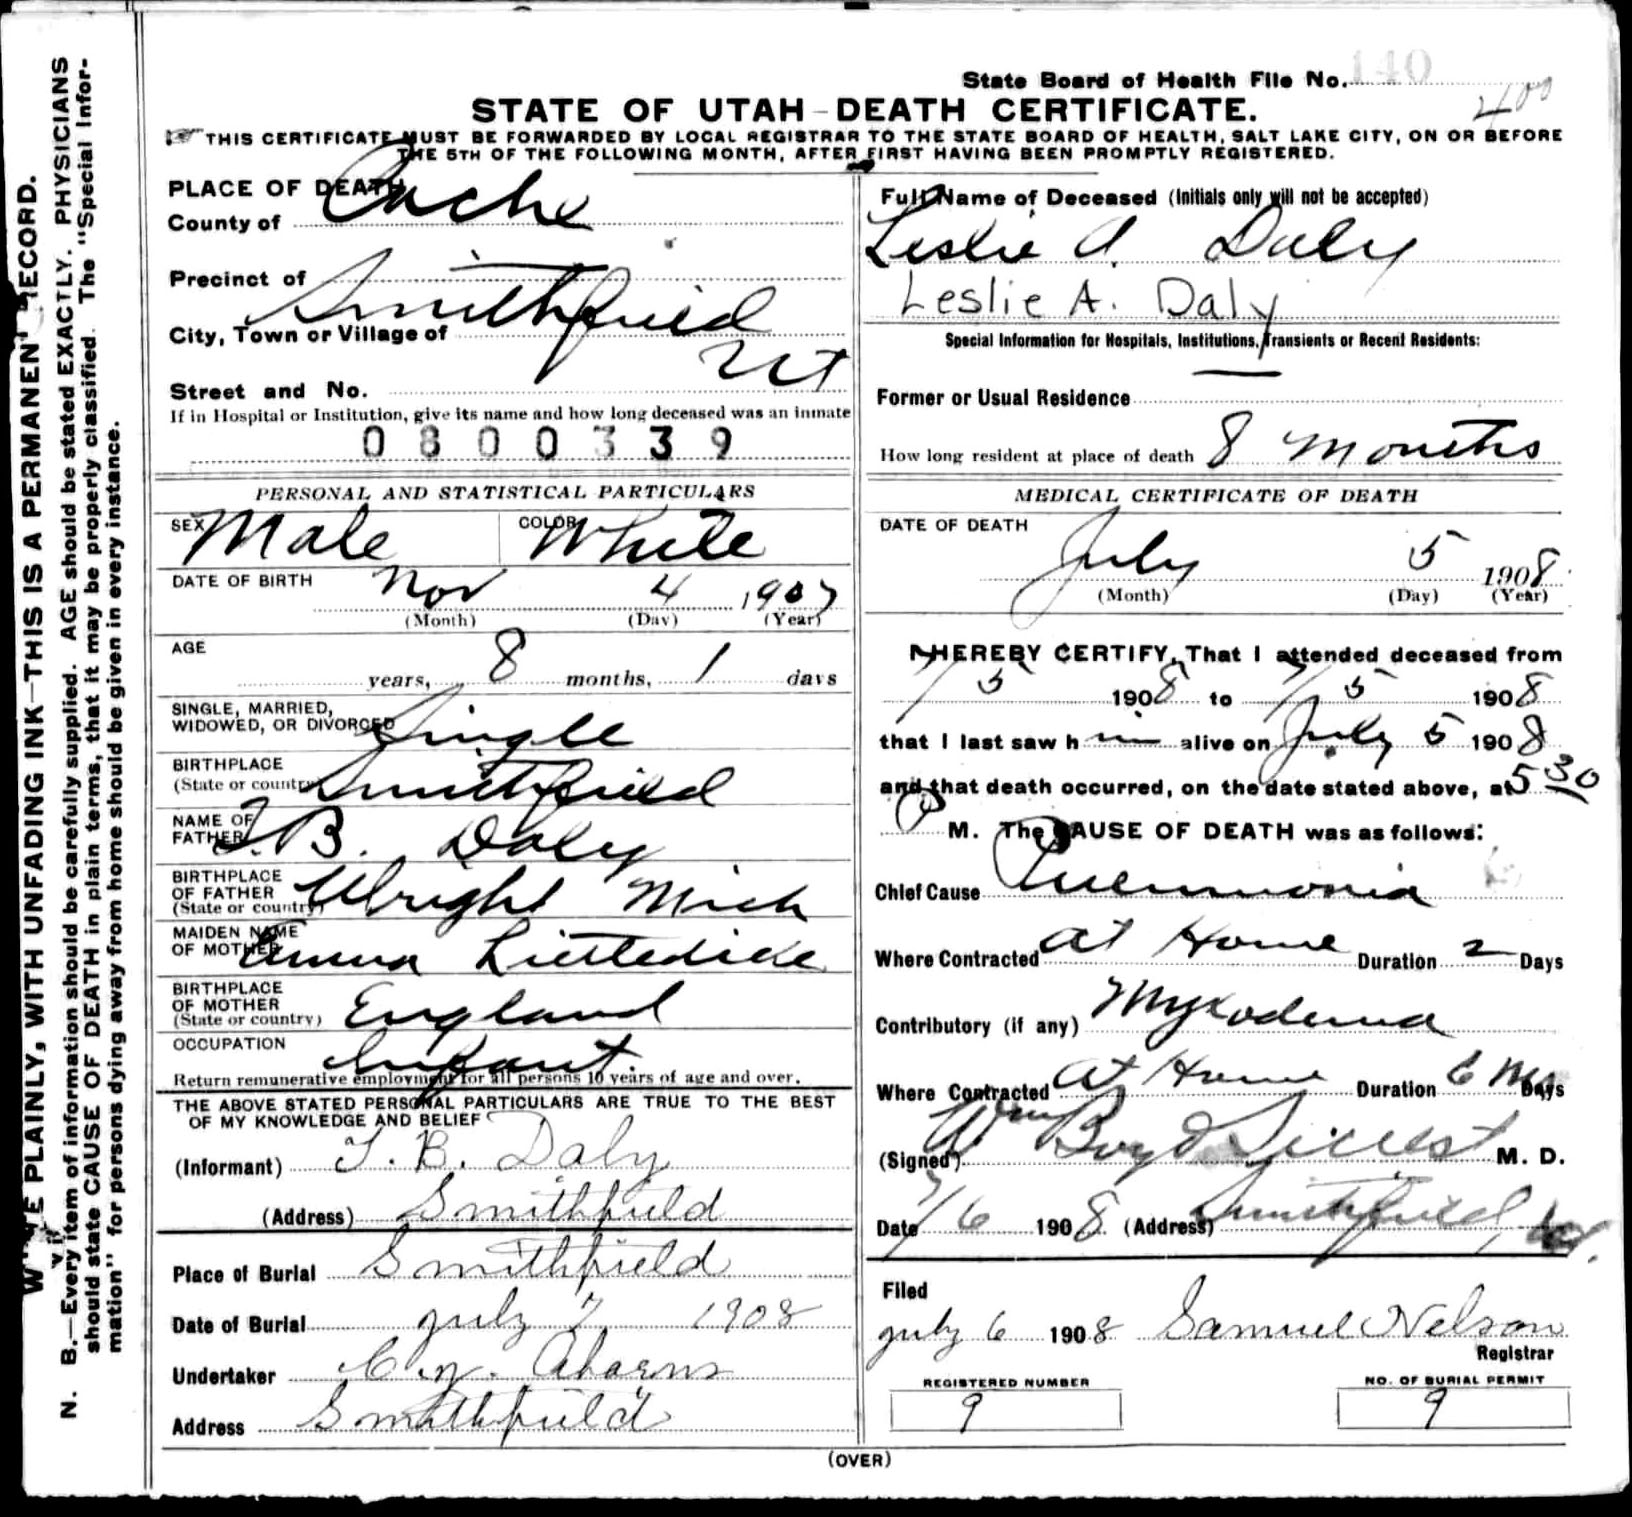 State Board of Health File No. 140
400
STATE OF UTAH—DEATH CERTIFICATE.
THIS CERTIFICATE MUST BE FORWARDED BY LOCAL REGISTRAR TO THE STATE BOARD OF HEALTH, SALT LAKE CITY, ON OR BEFORE
THE 5TH OF THE FOLLOWING MONTH, AFTER FIRST HAVING BEEN PROMPTLY REGISTERED.
WRITE PLAINLY, WITH UNFADING INK—THIS IS A PERMANENT RECORD.
N. B.—Every item of information should be carefully supplied. AGE should be stated EXACTLY. PHYSICIANS
should state CAUSE OF DEATH in plain terms, that it may be properly classified. The "Special Infor-
mation" for persons dying away from home should be given in every instance.
PLACE OF DEATH
County of Cache
Precinct of
City, Town or Village of Smithfield
Ut
Street and No.
If in Hospital or Institution, give its name and how long deceased was an inmate
0800339
PERSONAL AND STATISTICAL PARTICULARS
SEX Male COLOR White
DATE OF BIRTH Nov 4 1907
(Month) (Day) (Year)
AGE
years, 8 months, 1 days
SINGLE, MARRIED,
WIDOWED, OR DIVORCED Single
BIRTHPLACE
(State or country) Smithfield
NAME OF
FATHER T. B. Daly
BIRTHPLACE
OF FATHER
(State or country) Wright Mich
MAIDEN NAME
OF MOTHER Emma Littledike
BIRTHPLACE
OF MOTHER
(State or country) England
OCCUPATION Infant.
Return remunerative employment for all persons 10 years of age and over.
THE ABOVE STATED PERSONAL PARTICULARS ARE TRUE TO THE BEST
OF MY KNOWLEDGE AND BELIEF
(Informant) T. B. Daly
(Address) Smithfield
Place of Burial Smithfield
Date of Burial July 7 1908
Undertaker
Address Smithfield
Full Name of Deceased (Initials only will not be accepted)
Leslie A. Daly
Leslie A. Daly
Special Information for Hospitals, Institutions, Transients or Recent Residents:
Former or Usual Residence
How long resident at place of death 8 months
MEDICAL CERTIFICATE OF DEATH
DATE OF DEATH
July 5 1908
(Month) (Day) (Year)
I HEREBY CERTIFY, That I attended deceased from
7/5 1908 to 7/5 1908
that I last saw h im alive on July 5 1908
and that death occurred, on the date stated above, at 5 30
P M. The CAUSE OF DEATH was as follows:
Chief Cause Pneumonia
Where Contracted at Home Duration 2 Days
Contributory (if any) Myxodema
Where Contracted at Home Duration 6 Mo Days
(Signed) Wm Boyd M. D.
Date 7/6 1908 (Address) Smithfield, Ut.
Filed
July 6 1908 Samuel Nelson
Registrar
REGISTERED NUMBER
9
NO. OF BURIAL PERMIT
9
(OVER)